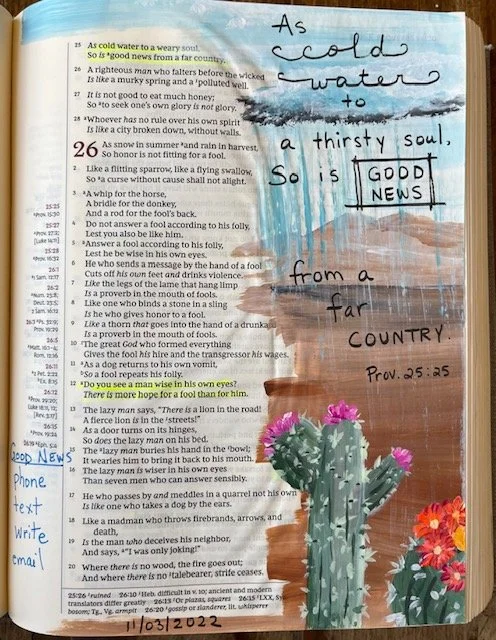 25 As cold water to a weary soul,
So is ᵃgood news from a far country.
26 A righteous man who falters before the wicked
Is like a murky spring and a ¹polluted well.
27 It is not good to eat much honey;
So ᵃto seek one's own glory is not glory.
28 ᵃWhoever has no rule over his own spirit
Is like a city broken down, without walls.
26 As snow in summer ᵃand rain in harvest,
So honor is not fitting for a fool.
2 Like a flitting sparrow, like a flying swallow,
So ᵃa curse without cause shall not alight.
3 ᵃA whip for the horse,
A bridle for the donkey,
And a rod for the fool's back.
4 Do not answer a fool according to his folly,
Lest you also be like him.
5 ᵃAnswer a fool according to his folly,
Lest he be wise in his own eyes.
6 He who sends a message by the hand of a fool
Cuts off his own feet and drinks violence.
7 Like the legs of the lame that hang limp
Is a proverb in the mouth of fools.
8 Like one who binds a stone in a sling
Is he who gives honor to a fool.
9 Like a thorn that goes into the hand of a drunka
Is a proverb in the mouth of fools.
10 ¹The great God who formed everything
Gives the fool his hire and the transgressor his wages.
11 ᵃAs a dog returns to his own vomit,
ᵇSo a fool repeats his folly.
12 ᵃDo you see a man wise in his own eyes?
There is more hope for a fool than for him.
13 The lazy man says, "There is a lion in the road!
A fierce lion is in the ¹streets!"
14 As a door turns on its hinges,
So does the lazy man on his bed.
15 The ᵃlazy man buries his hand in the ¹bowl;
It wearies him to bring it back to his mouth.
16 The lazy man is wiser in his own eyes
Than seven men who can answer sensibly.
17 He who passes by and meddles in a quarrel not his own
Is like one who takes a dog by the ears.
18 Like a madman who throws firebrands, arrows, and
death,
19 Is the man who deceives his neighbor,
And says, ᵃ"I was only joking!"
20 Where there is no wood, the fire goes out;
And where there is no ¹talebearer, strife ceases.
25:26 ¹ruined 26:10 ¹Heb. difficult in v. 10; ancient and modern
translators differ greatly 26:13 ¹Or plazas, squares 26:15 ¹LXX, Sy
bosom; Tg., Vg. armpit 26:20 ¹gossip or slanderer, lit. whisperer
11/03/2022
25:25
ᵃProv. 15:30
25:27
ᵃProv. 27:2;
[Luke 14:11]
25:28
ᵃProv. 16:32
26:1
ᵃ1 Sam. 12:17
26:2
ᵃNum. 23:8;
Deut. 23:5;
2 Sam. 16:12
26:3 ᵃPs. 32:9;
Prov. 19:29
26:5
ᵃMatt. 16:1–4;
Rom. 12:16
26:11
ᵃ2 Pet. 2:22
ᵇEx. 8:15
26:12
ᵃProv. 29:20;
Luke 18:11, 12;
[Rev. 3:17]
26:15
ᵃProv. 19:24
26:19 ᵃEph. 5:4
GOOD NEWS
phone
text
write
email
As
cold
water
to
a thirsty soul,
So is GOOD
NEWS
from a
far
COUNTRY.
Prov. 25:25